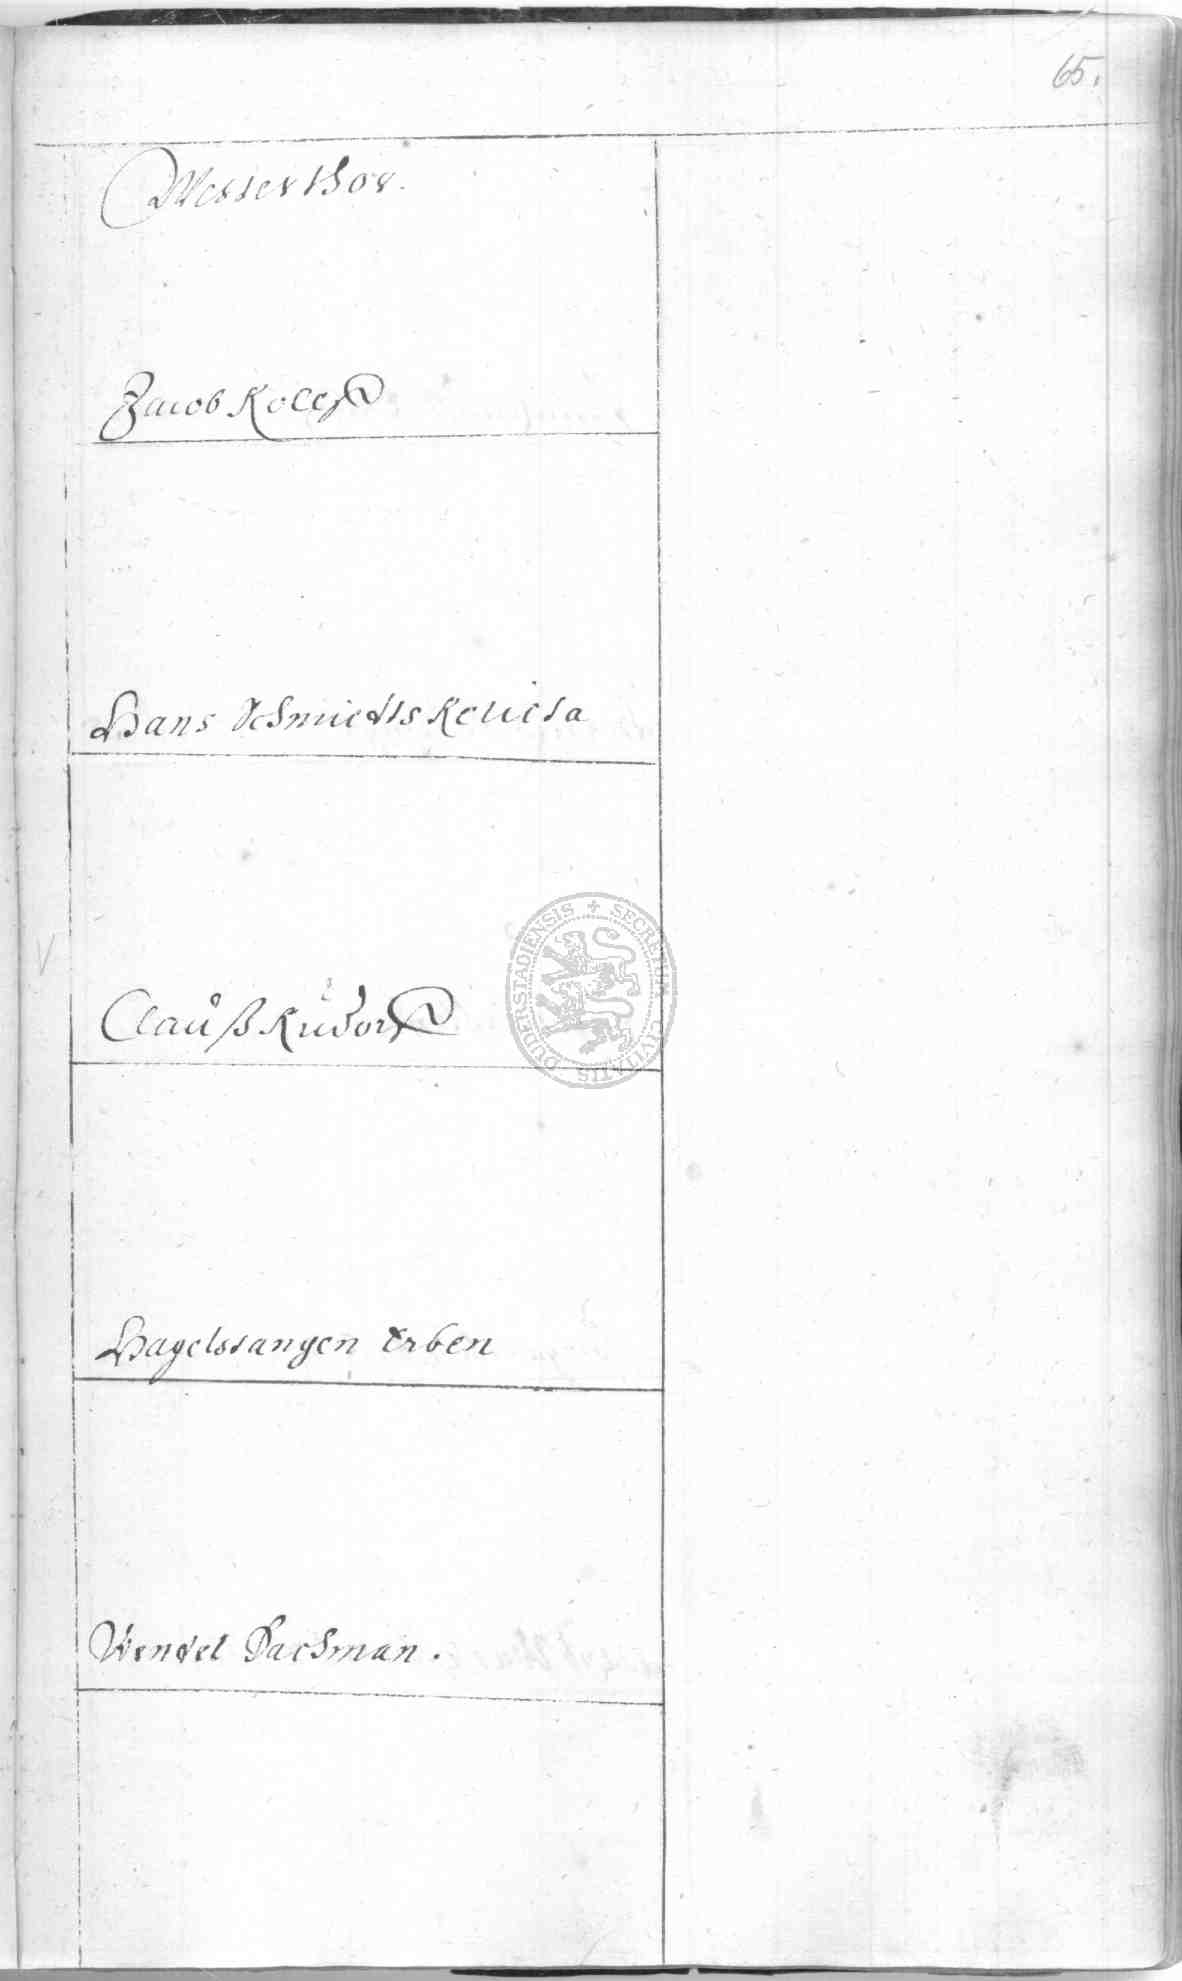 65.
Westerthor.
Jacob Koch
Hans Schmiedts Relicta
Clauß Rudorff
Hagelstangen Erben
Wendel Bachman.
SECRETUM CIVITATIS DUDERSTADIENSIS